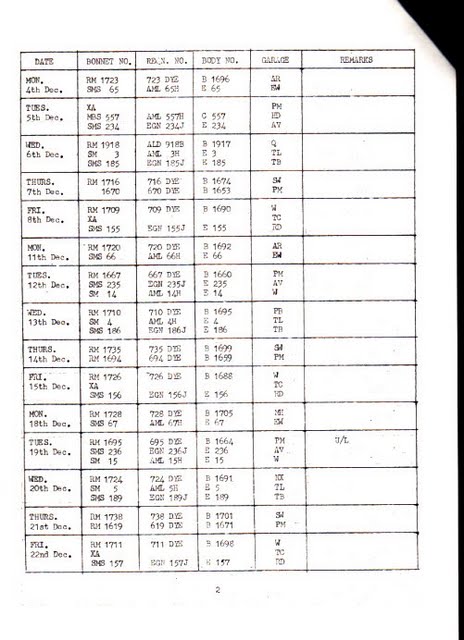 DATE BONNET NO. REGN. NO. BODY NO. GARAGE REMARKS
MON. RM 1723 723 DYE B 1696 AR
4th Dec. SMS 65 AML 65H E 65 EW
TUES. XA PM
5th Dec. MBS 557 AML 557H C 557 HD
SMS 234 EGN 234J E 234 AV
WED. RM 1918 ALD 918B B 1917 Q
6th Dec. SM 3 AML 3H E 3 TL
SMS 185 EGN 185J E 185 TB
THURS. RM 1716 716 DYE B 1674 SW
7th Dec. 1670 670 DYE B 1653 PM
FRI. RM 1709 709 DYE B 1690 W
8th Dec. XA TC
SMS 155 EGN 155J E 155 HD
MON. RM 1720 720 DYE B 1692 AR
11th Dec. SMS 66 AML 66H E 66 EW
TUES. RM 1667 667 DYE B 1660 PM
12th Dec. SMS 235 EGN 235J E 235 AV
SM 14 AML 14H E 14 W
WED. RM 1710 710 DYE B 1695 PB
13th Dec. SM 4 AML 4H E 4 TL
SMS 186 EGN 186J E 186 TB
THURS. RM 1735 735 DYE B 1699 SW
14th Dec. RM 1694 694 DYE B 1659 PM
FRI. RM 1726 726 DYE B 1688 W
15th Dec. XA TC
SMS 156 EGN 156J E 156 HD
MON. RM 1728 728 DYE B 1705
18th Dec. SMS 67 AML 67H E 67 EW
TUES. RM 1695 695 DYE B 1664 PM U/L
19th Dec. SMS 236 EGN 236J E 236 AV
SM 15 AML 15H E 15 W
WED. RM 1724 724 DYE B 1691 HX
20th Dec. SM 5 AML 5H E 5 TL
SMS 189 EGN 189J E 189 TB
THURS. RM 1738 738 DYE B 1701 SW
21st Dec. RM 1619 619 DYE B 1671 PM
FRI. RM 1711 711 DYE B 1698 W
22nd Dec. XA TC
SMS 157 EGN 157J E 157 HD
2